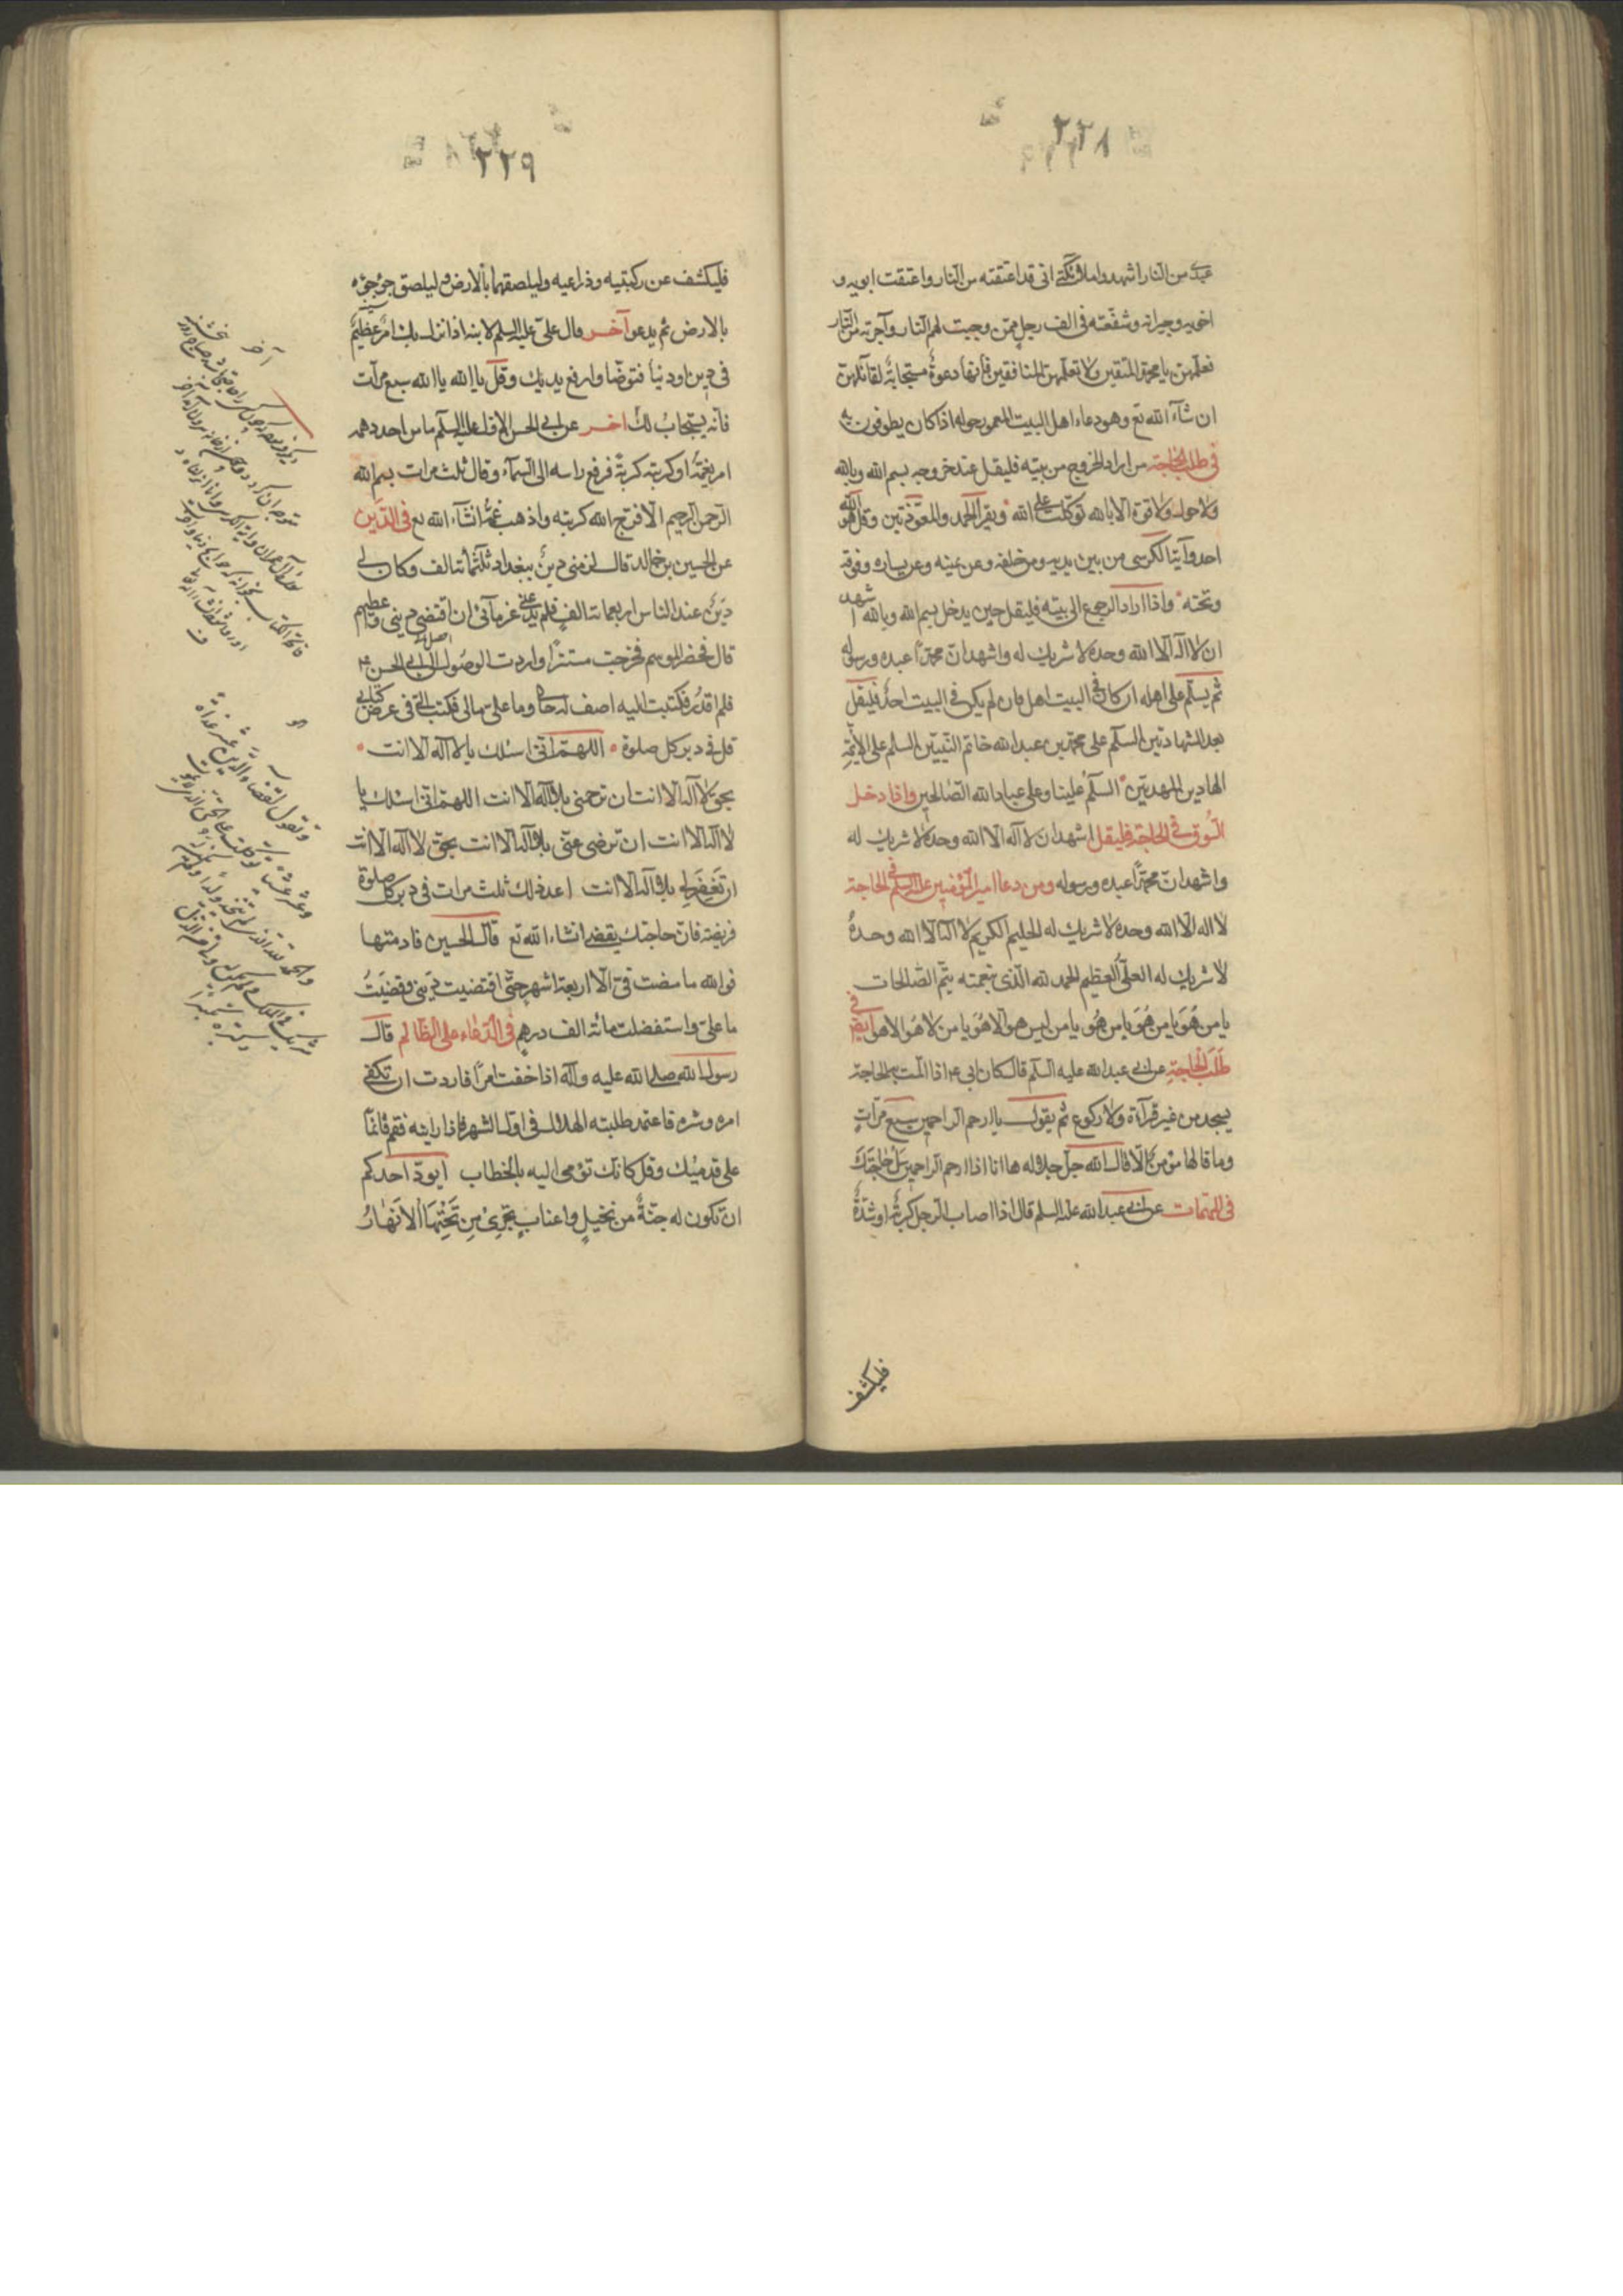 ٢٢٨
عبدي من النار اشهدوا ملائكتي اني قد اعتقته من النار واعتقت ابويه و
اخويه وجيرانه وشفّعته في الف رجل ممّن وجبت لهم النار وآجرته من النار
فعلّمهنّ يا محمّد المتّقين ولا تعلّمهنّ المنافقين فانّها دعوة مستجابة لقائلهنّ
ان شآء الله تع وهو دعاء اهل البيت المعمور حوله اذا كان يطوفون به
في طلب الحاجة من اراد الخروج من بيته فليقل عند خروجه بسم الله وبالله
ولا حول ولا قوة الا بالله توكّلت على الله ويقرأ الحمد والمعوّذتين وقل هو الله
احد وآية الكرسي من بين يديه ومن خلفه وعن يمينه وعن يساره وفوقه
وتحته واذا اراد الرجوع الى بيته فليقل حين يدخل بسم الله وبالله اشهد
ان لا اله الا الله وحده لا شريك له واشهد انّ محمّداً عبده ورسوله
ثم يسلّم على اهله ان كان في البيت اهل وان لم يكن في البيت احد فليقل
بعد الشهادتين السلم على محمّد بن عبد الله خاتم النبيّين السلم على الائمّة
الهادين المهديّين السلم علينا وعلى عباد الله الصّالحين واذا دخل
السّوق في الحاجة فليقل اشهد ان لا اله الا الله وحده لا شريك له
واشهد انّ محمّداً عبده ورسوله ومن دعا امير المؤمنين عليه السلم في الحاجة
لا اله الا الله وحده لا شريك له الحليم الكريم لا اله الا الله وحده
لا شريك له العليّ العظيم الحمد لله الّذي بنعمته يتمّ الصّالحات
يا من هو يا من هو يا من هو يا من ليس هو الا هو يا من لا هو الا هو ايضا في
طلب الحاجة عن ابي عبد الله عليه السلم قال كان ابي ع اذا المّت به الحاجة
يسجد من غير قرآءة ولا ركوع ثم يقول يا ارحم الراحمين سبع مرّات
وما قالها مؤمن الّا قال الله جلّ جلاله ها انا اذا ارحم الراحمين سل حاجتك
في المهمّات عن ابي عبد الله عليه السلم قال اذا اصاب الرجل كربة او شدّة
فليكشف
٢٢٩
فليكشف عن ركبتيه وذراعيه وليلصقهما بالارض وليلصق جؤجؤه
بالارض ثم يدعو آخر وقال عليّ عليه السلم لابنه اذا نزل بك امر عظيم
في دين او دنيا فتوضّا وارفع يديك وقل يا الله يا الله سبع مرّات
فانّه يستجاب لك آخر عن ابي الحسن الاول عليه السلم ما من احد دهمه
امر يغمّه او كربته كربة فرفع راسه الى السّمآء وقال ثلث مرات بسم الله
الرحمن الرحيم الّا فرّج الله كربته واذهب غمّه انشآء الله تع في الدّين
عن الحسين بن خالد قال لزمني دين ببغداد ثلثمائة الف وكان لي
دين عند الناس اربعمائة الف فلم يدعني غرمآئي ان اقتضي ديني واعطيهم
قال فحضر الموسم فخرجت مستتراً واردت الوصول الى ابي الحسن ع
فلم اقدر فكتبت اليه اصف له حالي وما عليّ ومالي فكتب اليّ في عرض كتابي
قل في دبر كل صلوة اللهمّ انّي اسئلك يا لا اله الا انت
بحقّ لا اله الا انت ان ترحمني بلا اله الا انت اللهمّ انّي اسئلك يا
لا اله الا انت ان ترضى عنّي بلا اله الا انت بحقّ لا اله الا انت
ان تغفر لي بلا اله الا انت اعد ذلك ثلث مرات في دبر كل صلوة
فريضة فانّ حاجتك يقضى انشاء الله تع قال الحسين فادمتها
فوالله ما مضت في الّا اربعة اشهر حتّى اقتضيت ديني وقضيت
ما عليّ واستفضلت مائة الف درهم في الدّعاء على الظّالم قال
رسول الله صلى الله عليه وآله اذا خفت امراً فاردت ان تكفي
امره وشره فاعتمد طلبته الهلال في اول الشهر فاذا رايته فقم قائماً
على قدميك وقل كانّك تؤمي اليه بالخطاب ايودّ احدكم
ان تكون له جنّة من نخيل واعناب تجري من تحتها الانهار
آخر